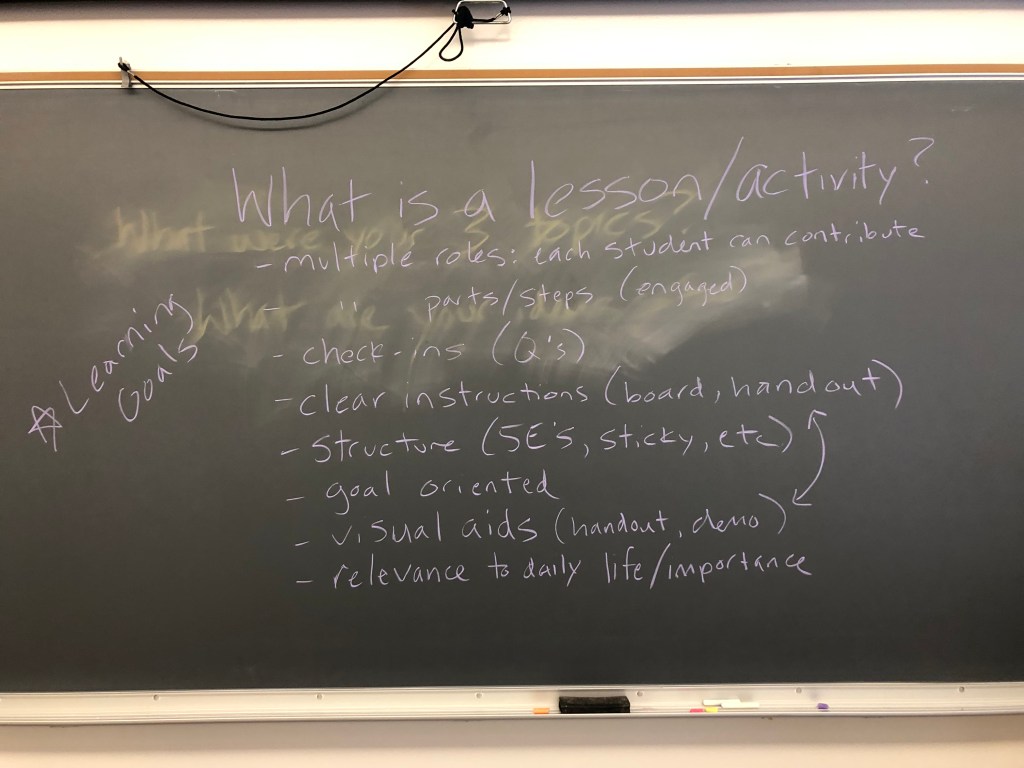 What is a lesson/activity?
What were your 3 topics?
- multiple roles: each student can contribute
- " parts/steps (engaged)
What are your
- check-ins (Q's)
☆ Learning
Goals
- clear instructions (board, handout)
- structure (5E's, sticky, etc)
- goal oriented
- visual aids (handout, demo)
- relevance to daily life/importance